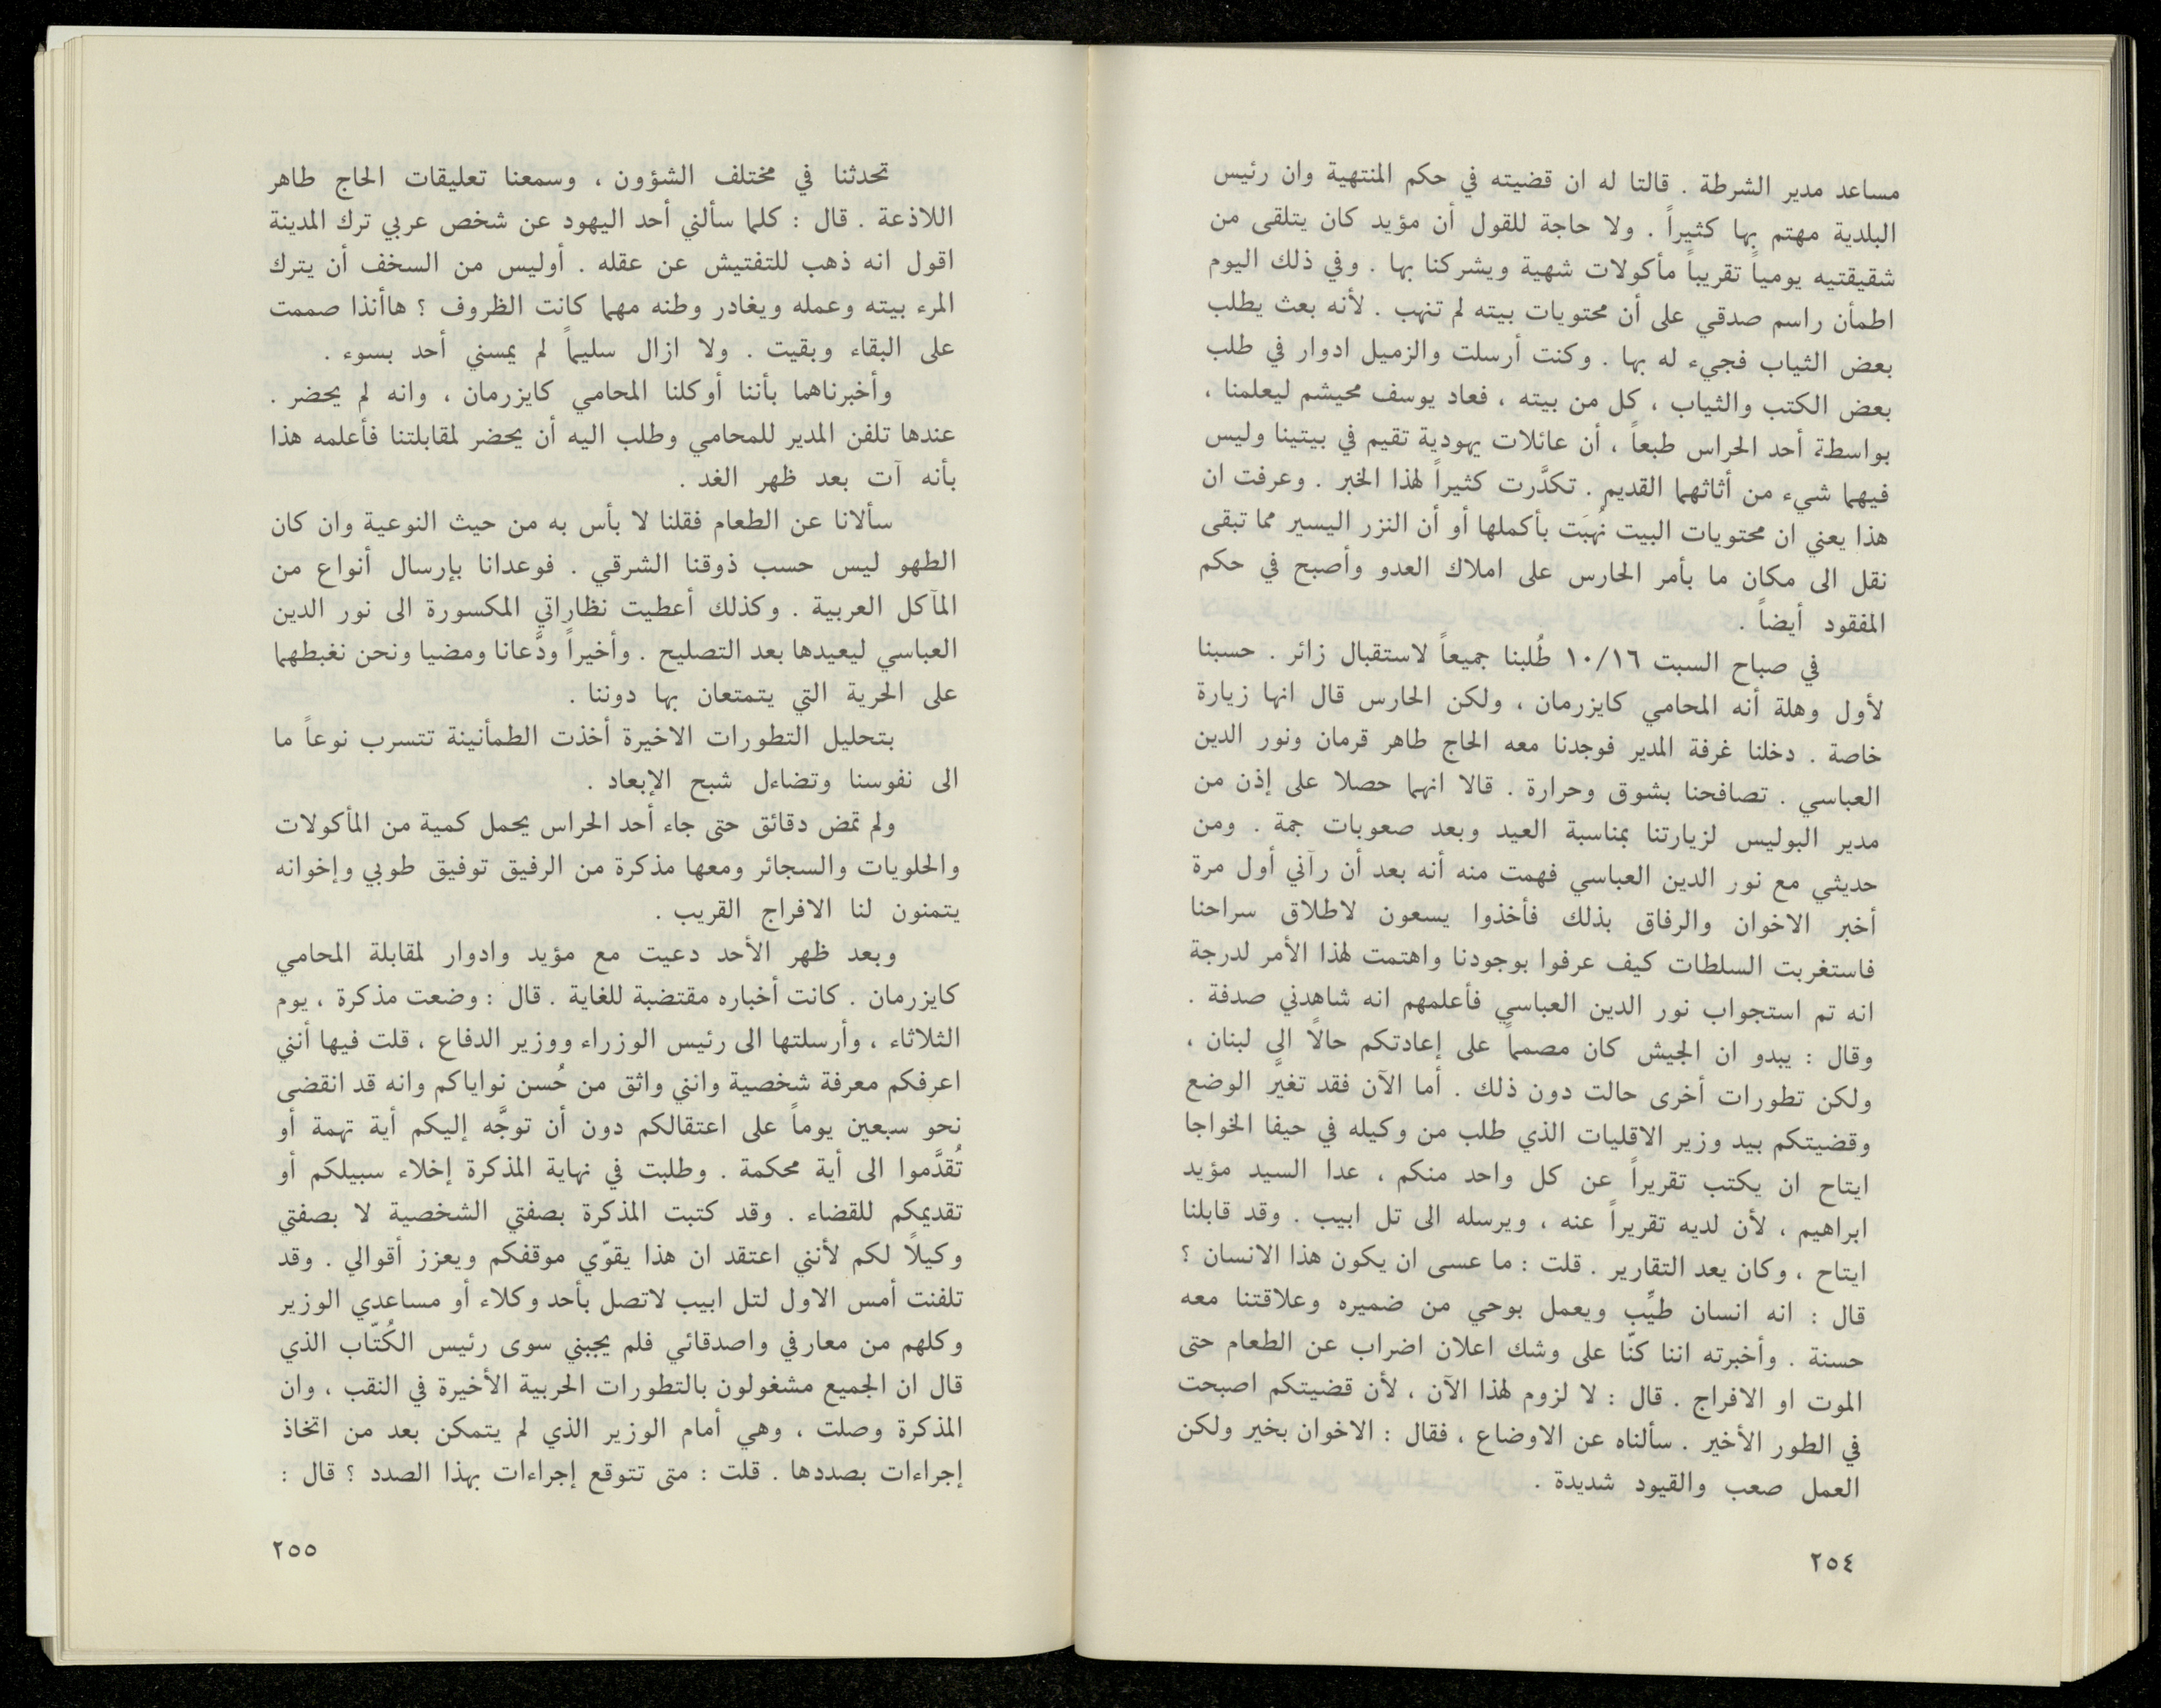 مساعد مدير الشرطة . قالتا له ان قضيته في حكم المنتهية وان رئيس
البلدية مهتم بها كثيراً . ولا حاجة للقول أن مؤيد كان يتلقى من
شقيقتيه يومياً تقريباً مأكولات شهية ويشركنا بها . وفي ذلك اليوم
اطمأن راسم صدقي على أن محتويات بيته لم تنهب . لأنه بعث يطلب
بعض الثياب فجيء له بها . وكنت أرسلت والزميل ادوار في طلب
بعض الكتب والثياب ، كل من بيته ، فعاد يوسف محيشم ليعلمنا ،
بواسطة أحد الحراس طبعاً ، أن عائلات يهودية تقيم في بيتينا وليس
فيهما شيء من أثاثهما القديم . تكدَّرت كثيراً لهذا الخبر . وعرفت ان
هذا يعني ان محتويات البيت نُهبَت بأكملها أو أن النزر اليسير مما تبقى
نقل الى مكان ما بأمر الحارس على املاك العدو وأصبح في حكم
المفقود أيضاً .
في صباح السبت ١٠/١٦ طُلبنا جميعاً لاستقبال زائر . حسبنا
لأول وهلة أنه المحامي كايزرمان ، ولكن الحارس قال انها زيارة
خاصة . دخلنا غرفة المدير فوجدنا معه الحاج طاهر قرمان ونور الدين
العباسي . تصافحنا بشوق وحرارة . قالا انهما حصلا على إذن من
مدير البوليس لزيارتنا بمناسبة العيد وبعد صعوبات جمة . ومن
حديثي مع نور الدين العباسي فهمت منه أنه بعد أن رآني أول مرة
أخبر الاخوان والرفاق بذلك فأخذوا يسعون لاطلاق سراحنا
فاستغربت السلطات كيف عرفوا بوجودنا واهتمت لهذا الأمر لدرجة
انه تم استجواب نور الدين العباسي فأعلمهم انه شاهدني صدفة .
وقال : يبدو ان الجيش كان مصمماً على إعادتكم حالاً الى لبنان ،
ولكن تطورات أخرى حالت دون ذلك . أما الآن فقد تغيَّر الوضع
وقضيتكم بيد وزير الاقليات الذي طلب من وكيله في حيفا الخواجا
ايتاح ان يكتب تقريراً عن كل واحد منكم ، عدا السيد مؤيد
ابراهيم ، لأن لديه تقريراً عنه ، ويرسله الى تل ابيب . وقد قابلنا
ايتاح ، وكان يعد التقارير . قلت : ما عسى ان يكون هذا الانسان ؟
قال : انه انسان طيِّب ويعمل بوحي من ضميره وعلاقتنا معه
حسنة . وأخبرته اننا كنّا على وشك اعلان اضراب عن الطعام حتى
الموت او الافراج . قال : لا لزوم لهذا الآن ، لأن قضيتكم اصبحت
في الطور الأخير . سألناه عن الاوضاع ، فقال : الاخوان بخير ولكن
العمل صعب والقيود شديدة .
٢٥٤
تحدثنا في مختلف الشؤون ، وسمعنا تعليقات الحاج طاهر
اللاذعة . قال : كلما سألني أحد اليهود عن شخص عربي ترك المدينة
اقول انه ذهب للتفتيش عن عقله . أوليس من السخف أن يترك
المرء بيته وعمله ويغادر وطنه مهما كانت الظروف ؟ هاأنذا صممت
على البقاء وبقيت . ولا ازال سليماً لم يمسني أحد بسوء .
وأخبرناهما بأننا أوكلنا المحامي كايزرمان ، وانه لم يحضر .
عندها تلفن المدير للمحامي وطلب اليه أن يحضر لمقابلتنا فأعلمه هذا
بأنه آت بعد ظهر الغد .
سألانا عن الطعام فقلنا لا بأس به من حيث النوعية وان كان
الطهو ليس حسب ذوقنا الشرقي . فوعدانا بإرسال أنواع من
المآكل العربية . وكذلك أعطيت نظاراتي المكسورة الى نور الدين
العباسي ليعيدها بعد التصليح . وأخيراً ودَّعانا ومضيا ونحن نغبطهما
على الحرية التي يتمتعان بها دوننا .
بتحليل التطورات الاخيرة أخذت الطمأنينة تتسرب نوعاً ما
الى نفوسنا وتضاءل شبح الإبعاد .
ولم تمض دقائق حتى جاء أحد الحراس يحمل كمية من المأكولات
والحلويات والسجائر ومعها مذكرة من الرفيق توفيق طوبي وإخوانه
يتمنون لنا الافراج القريب .
وبعد ظهر الأحد دعيت مع مؤيد وادوار لمقابلة المحامي
كايزرمان . كانت أخباره مقتضبة للغاية . قال : وضعت مذكرة ، يوم
الثلاثاء ، وأرسلتها الى رئيس الوزراء ووزير الدفاع ، قلت فيها أنني
اعرفكم معرفة شخصية وانني واثق من حُسن نواياكم وانه قد انقضى
نحو سبعين يوماً على اعتقالكم دون أن توجَّه إليكم أية تهمة أو
تُقدَّموا الى أية محكمة . وطلبت في نهاية المذكرة إخلاء سبيلكم أو
تقديمكم للقضاء . وقد كتبت المذكرة بصفتي الشخصية لا بصفتي
وكيلاً لكم لأنني اعتقد ان هذا يقوّي موقفكم ويعزز أقوالي . وقد
تلفنت أمس الاول لتل ابيب لاتصل بأحد وكلاء أو مساعدي الوزير
وكلهم من معارفي واصدقائي فلم يجبني سوى رئيس الكُتّاب الذي
قال ان الجميع مشغولون بالتطورات الحربية الأخيرة في النقب ، وان
المذكرة وصلت ، وهي أمام الوزير الذي لم يتمكن بعد من اتخاذ
إجراءات بصددها . قلت : متى تتوقع إجراءات بهذا الصدد ؟ قال :
٢٥٥